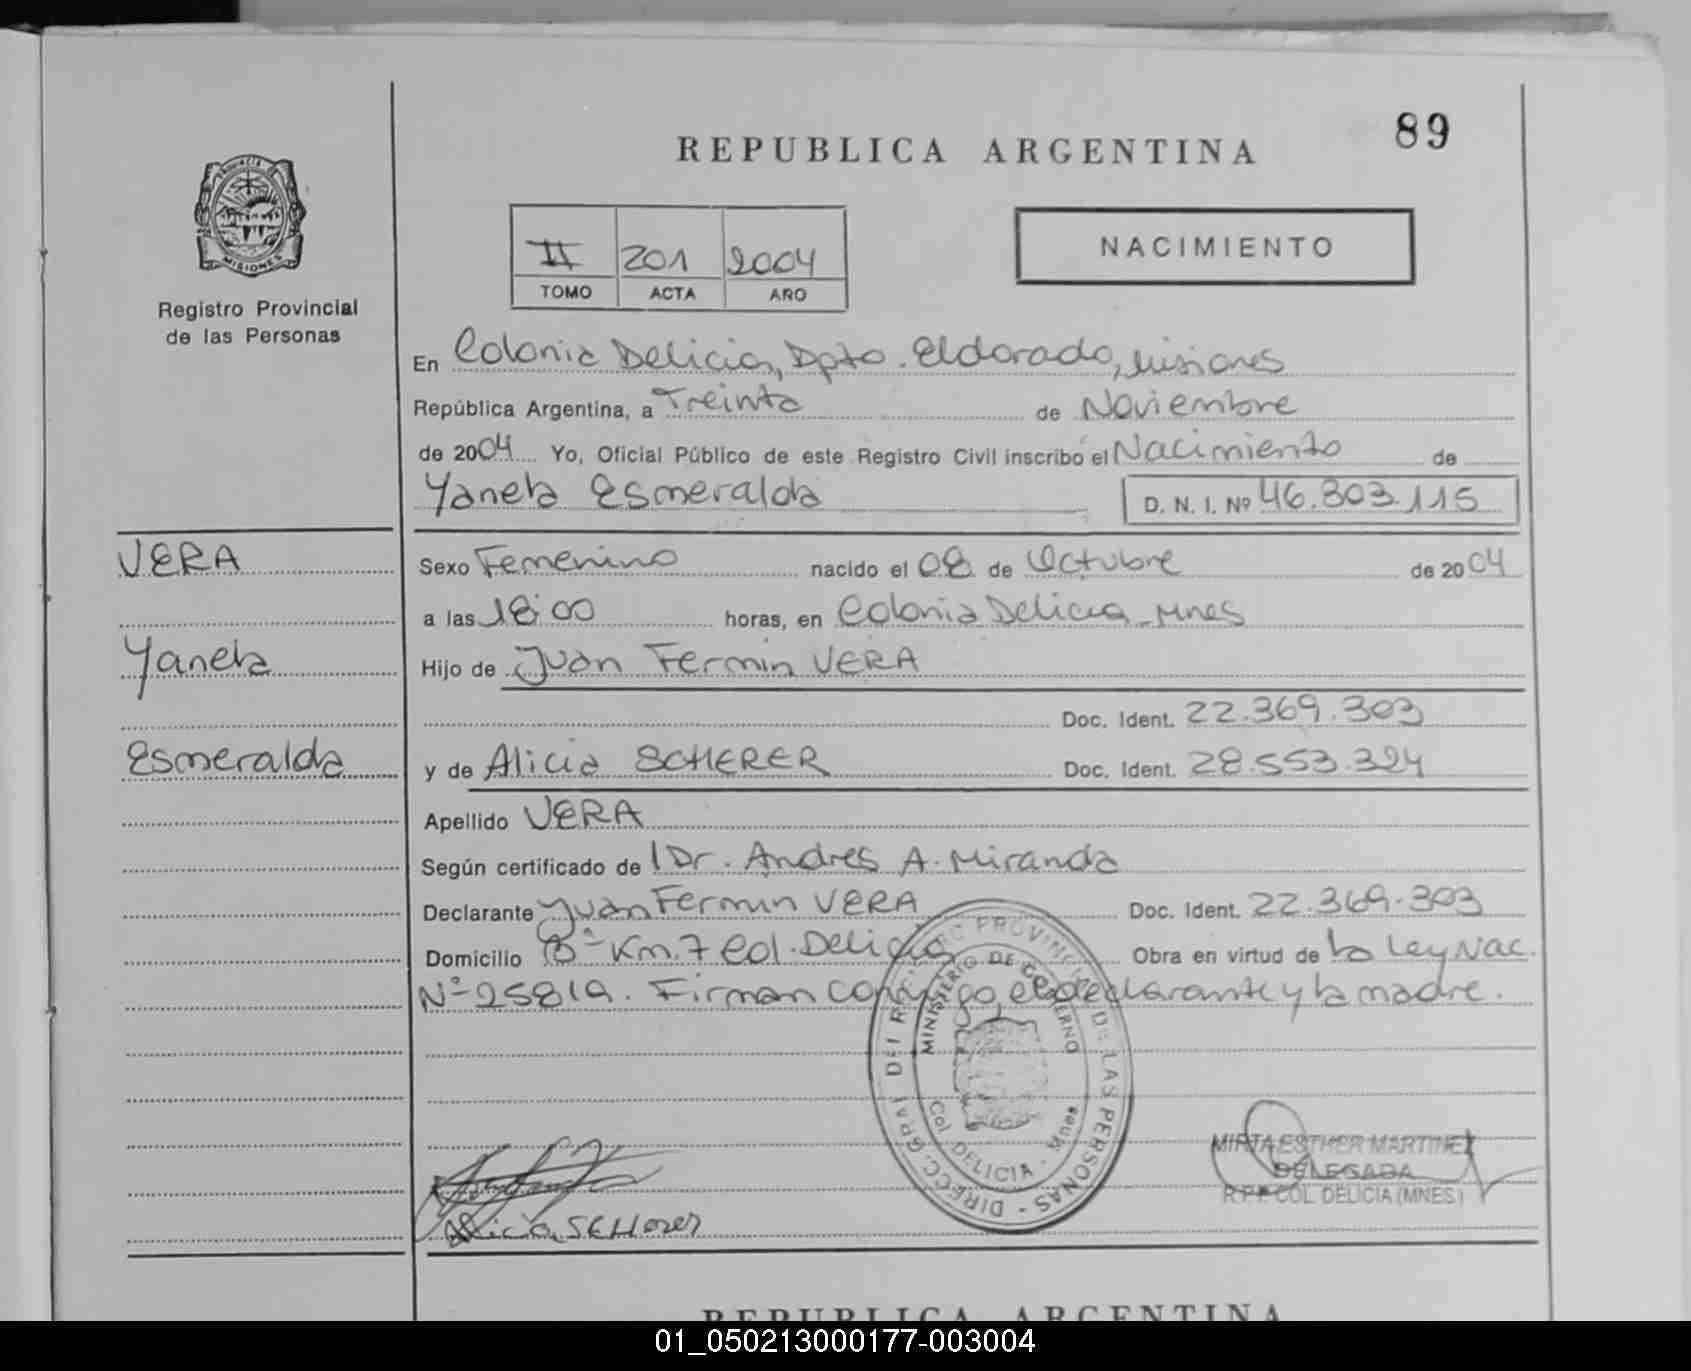 89
REPUBLICA ARGENTINA
PROVINCIA DE
MISIONES
Registro Provincial
de las Personas
II 201 2004
TOMO ACTA AÑO
NACIMIENTO
En Colonia Delicia, Dpto. Eldorado, Misiones
República Argentina, a Treinta de Noviembre
de 2004 Yo, Oficial Público de este Registro Civil inscribo el Nacimiento de
Yanela Esmeralda D. N. I. Nº 46.803.115
VERA
Yanela
Esmeralda
Sexo Femenino nacido el 08 de Octubre de 2004
a las 18:00 horas, en Colonia Delicia - Mnes
Hijo de Juan Fermin VERA
Doc. Ident. 22.369.303
y de Alicia SCHERER Doc. Ident. 28.553.324
Apellido VERA
Según certificado de Dr. Andres A. Miranda
Declarante Juan Fermin VERA Doc. Ident. 22.369.303
Domicilio Bº Km. 7 Col. Delicia Obra en virtud de la Ley Nac.
Nº 25819. Firman conmigo, el declarante y la madre.
DIRECC. GRAL DEL REGISTRO PROVINCIAL DE LAS PERSONAS
MINISTERIO DE GOBIERNO
Col. DELICIA - Mnes
Alicia SCHerer
MIRTA ESTHER MARTINEZ
DELEGADA
R.P.P COL. DELICIA (MNES)
REPUBLICA ARGENTINA
01_050213000177-003004